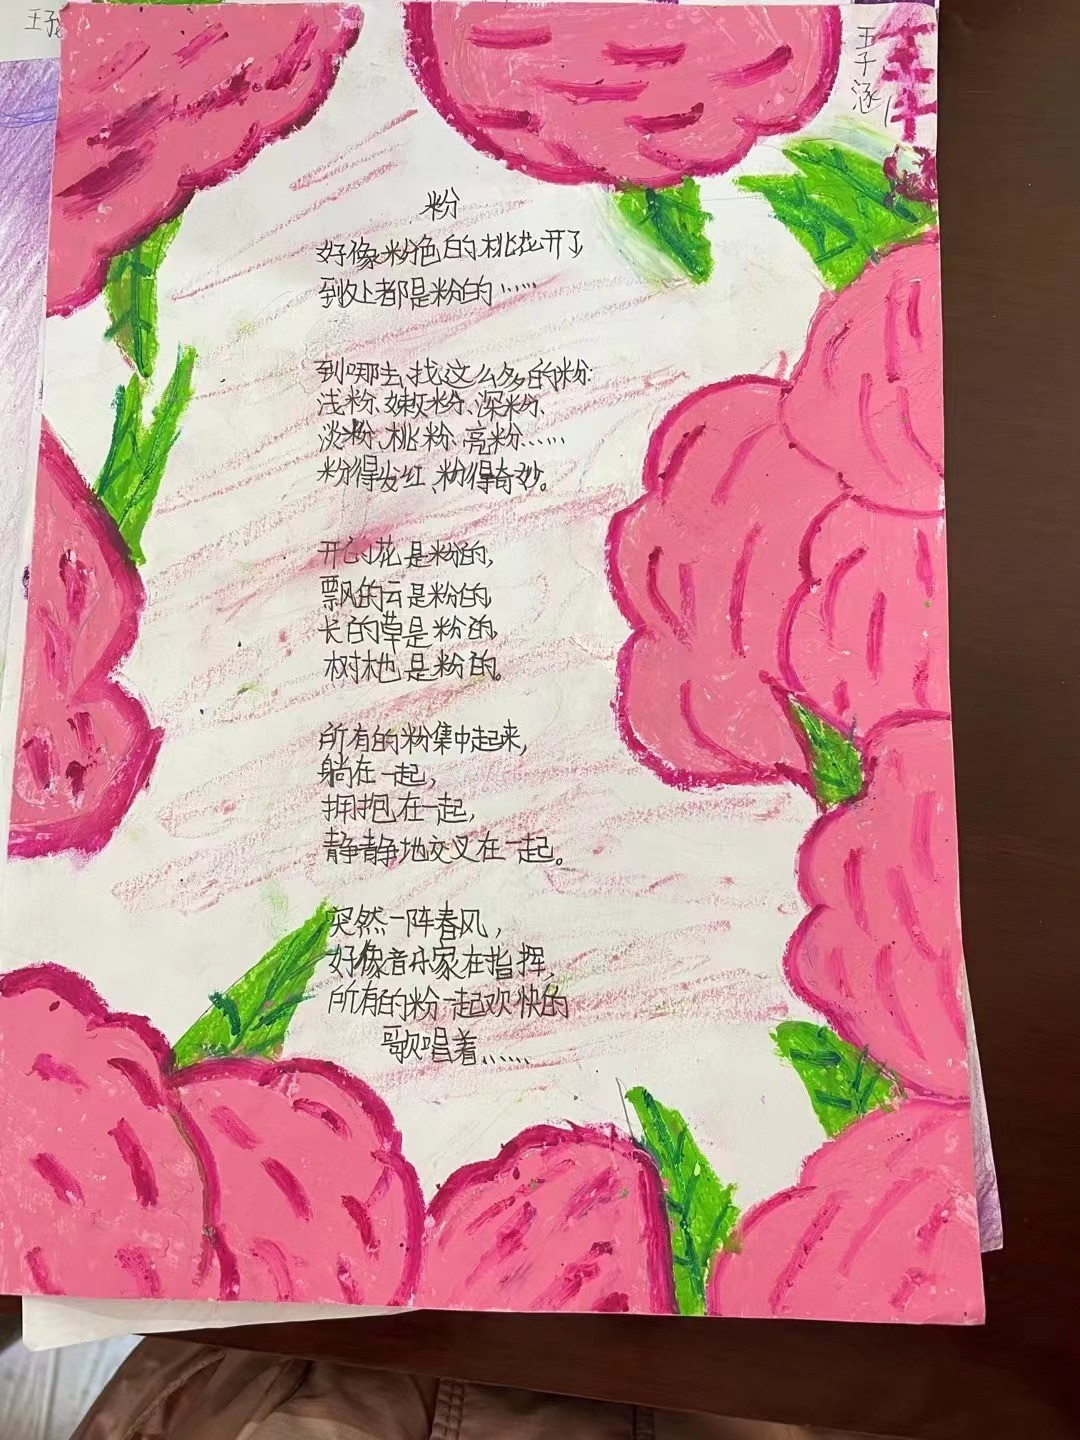 王子涵
粉
好像粉色的桃花开了
到处都是粉的……
到哪去找这么多的粉:
浅粉、嫩粉、深粉、
淡粉、桃粉、亮粉……
粉得发红、粉得奇妙。
开的花是粉的,
飘的云是粉的,
长的草是粉的,
树林也是粉的。
所有的粉集中起来,
躺在一起,
拥抱在一起,
静静地交叉在一起。
突然一阵春风,
好像音乐家在指挥,
所有的粉一起欢快的
歌唱着……